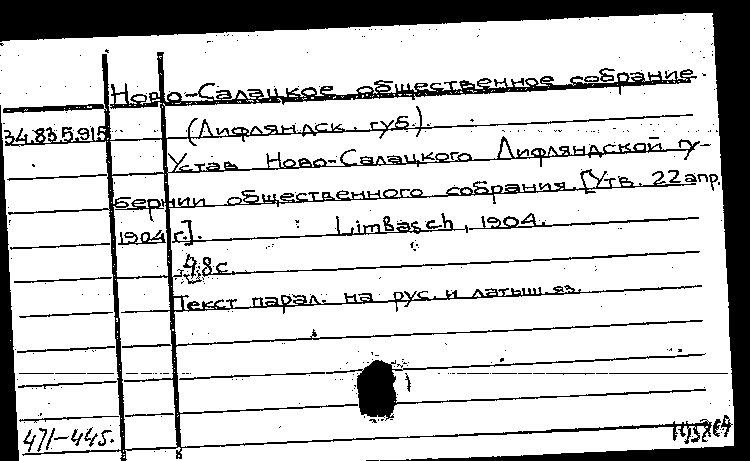 Ново-Салацкое общественное собрание
34.83 5.915 (Лифляндск. губ.).
Устав Ново-Салацкого Лифляндской гу-
бернии общественного собрания. [Утв. 22 апр.
1904 г.]. Limbasch, 1904.
48 с.
Текст парал. на рус. и латыш. яз.
471-445.